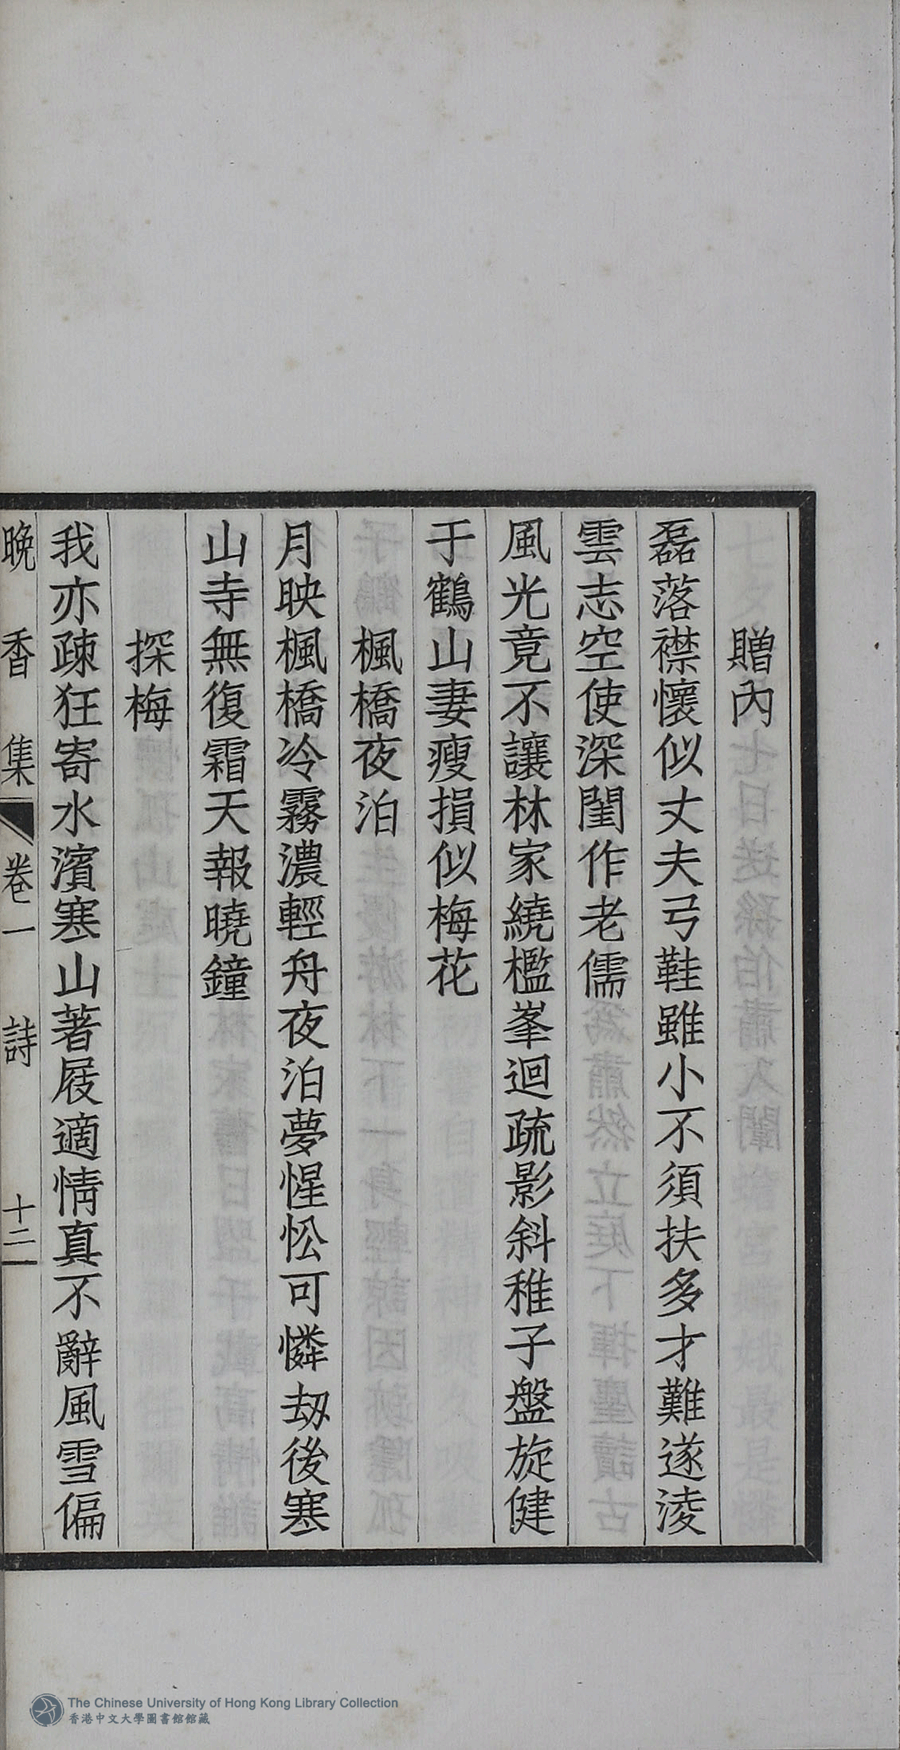 贈內
磊落襟懷似丈夫弓鞋雖小不須扶多才難遂淩
雲志空使深閨作老儒
風光竟不讓林家繞檻峯迴疏影斜稚子盤旋健
于鶴山妻瘦損似梅花
楓橋夜泊
月映楓橋冷霧濃輕舟夜泊夢惺忪可憐刼後寒
山寺無復霜天報曉鐘
探梅
我亦疎狂寄水濱寒山著屐適情真不辭風雪偏
晚香集 卷一 詩 十二
The Chinese University of Hong Kong Library Collection
香港中文大學圖書館館藏